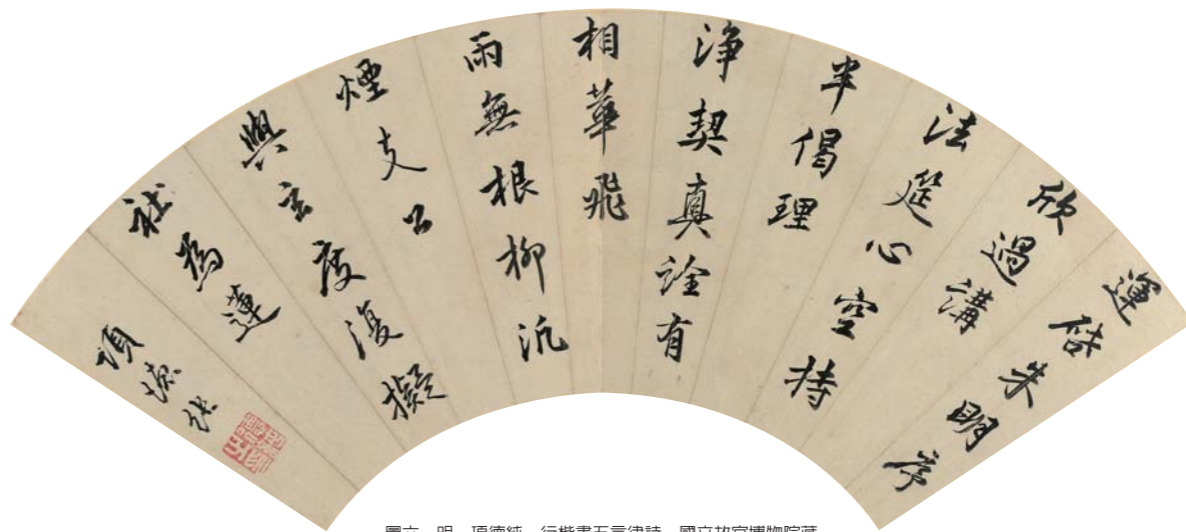 運啓朱明序
欣過講
法筵心空持
半偈理
淨契真詮有
相華飛
雨無根柳沉
煙支公
與玄度復擬
社為蓮
項德純
圖六 明 項德純 行楷書五言律詩 國立故宮博物院藏